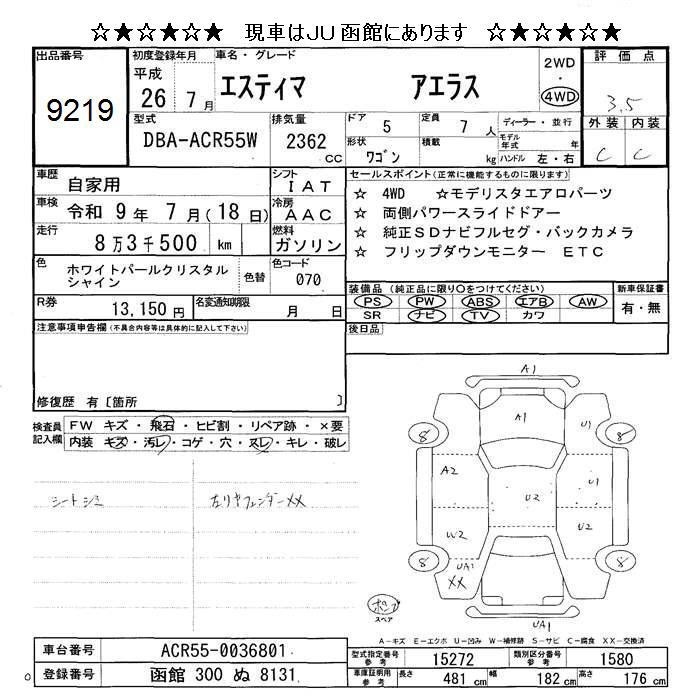 ☆★☆★☆★☆ 現車はJU函館にあります ☆★☆★☆★☆
出品番号
9219
初度登録年月
平成
26 7月
車名・グレード
エスティマ アエラス
2WD
・
4WD
評価点
3.5
型式
DBA-ACR55W
排気量
2362
cc
ドア
5
定員
7人
ディーラー・並行
モデル
年式 年
形状
ワゴン
積載
kg
ハンドル 左・右
外装 内装
C C
車歴
自家用
シフト
IAT
車検
令和 9年 7月(18日)
冷房
AAC
走行
8万3千500 km
燃料
ガソリン
色
ホワイトパールクリスタル
シャイン
色替
色コード
070
R券
13,150円
名変通知期限
月 日
セールスポイント(正常に機能するものに限ります)
☆ 4WD ☆モデリスタエアロパーツ
☆ 両側パワースライドドアー
☆ 純正SDナビフルセグ・バックカメラ
☆ フリップダウンモニター ETC
装備品 (純正品に限り○をつけてください)
PS PW ABS エアB AW
SR ナビ TV カワ
新車保証書
有・無
後日品
注意事項申告欄(不具合内容等は具体的に記入して下さい)
修復歴 有〔箇所 〕
検査員
記入欄
FW キズ・飛石・ヒビ割・リペア跡・×要
内装 キズ・汚レ・コゲ・穴・スレ・キレ・破レ
シートシミ
左リヤフェンダーXX
A1
A1
U1
8
8
A2
U1
U2
W2
U2
8
8
UA1
XX
UA1
スペア
A-キズ E-エクボ U-凹み W-補修跡 S-サビ C-腐食 XX-交換済
車台番号
ACR55-0036801
登録番号
函館 300 ぬ 8131
型式指定番号
参考
15272
類別区分番号
参考
1580
車庫証明用
参考
長さ
481 cm
幅
182 cm
高さ
176 cm